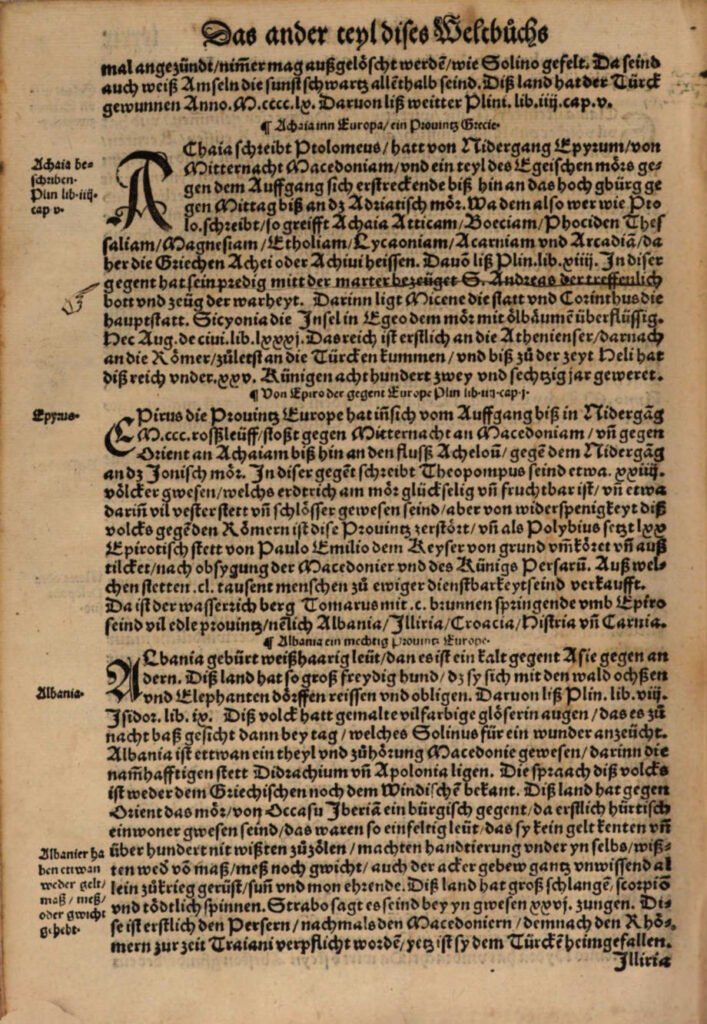 Das ander teyl dises Weltbůchs
mal angezündt/nim̃er mag außgelöscht werdẽ/wie Solino gefelt. Da seind
auch weiß Amseln die sunst schwartz allẽthalb seind. Diß land hat der Türck
gewunnen Anno. M. cccc. lx. Daruon liß weitter Plini. lib. iiij. cap. v.
¶ Achaia inn Europa/ein Prouintz Grecie.
Achaia be-
schriben.
Plin lib. iiij.
cap v.
AChaia schreibt Ptolomeus/hatt von Nidergang Epyrum/von
Mitternacht Macedoniam/vnd ein teyl des Egeischen mörs ge-
gen dem Auffgang sich erstreckende biß hin an das hoch gbürg ge
gen Mittag biß an dz Adriatisch mör. Wa dem also wer wie Pto
lo. schreibt/so greifft Achaia Atticam/Boeciam/Phociden Thes
saliam/Magnesiam/Etholiam/Lycaoniam/Acarniam vnd Arcadiã/da
her die Griechen Achei oder Achiui heissen. Dauõ liß Plin. lib. xiiij. In diser
gegent hat sein predig mitt der marter bezeüget S. Andreas der treffenlich
bott vnd zeüg der warheyt. Darinn ligt Micene die statt vnd Corinthus die
hauptstatt. Sicyonia die Insel in Egeo dem mör mit ölbäumẽ überflüssig.
Hec Aug. de ciui. lib. lxxxj. Das reich ist erstlich an die Athenienser/darnach
an die Römer/zůletst an die Türcken kummen/vnd biß zů der zeyt Heli hat
diß reich vnder. xxv. Künigen acht hundert zwey vnd sechtzig jar geweret.
¶ Von Epiro der gegent Europe Plin lib. iiij. cap. j.
Epyrus.
EPirus die Prouintz Europe hat iñ sich vom Auffgang biß in Nidergãg
M. ccc. roßleüff/stoßt gegen Mitternacht an Macedoniam/vñ gegen
Orient an Achaiam biß hin an den flusß Acheloũ/gegẽ dem Nidergãg
an dz Jonisch mör. In diser gegẽt schreibt Theopompus seind etwa. xxiiij.
völcker gwesen/welchs erdtrich am mör glückselig vñ fruchtbar ist/vñ etwa
dariñ vil vester stett vñ schlösser gewesen seind/aber von widerspenigkeyt diß
volcks gegẽ den Römern ist dise Prouintz zerstört/vñ als Polybius setzt lxx
Epirotisch stett von Paulo Emilio dem Keyser von grund vm̃köret vñ auß
tilcket/nach obsygung der Macedonier vnd des Künigs Persarũ. Auß wel-
chen stetten .cl. tausent menschen zů ewiger dienstbarkeyt seind verkaufft.
Da ist der wasserrich berg Tomarus mit .c. brunnen springende vmb Epiro
seind vil edle prouintz/nẽlich Albania/Illiria/Croacia/Histria vñ Carnia.
¶ Albania ein mechtig prouintz Europe.
Albania.
ALbania gebürt weißhaarig leüt/dan es ist ein kalt gegent Asie gegen an
dern. Diß land hat so groß freydig hund/dz sy sich mit den wald ochßen
vnd Elephanten dörffen reissen vnd obligen. Daruon liß Plin. lib. viij.
Isidor. lib. ix. Diß volck hatt gemalte vilfarbige glöserin augen/das es zů
nacht baß gesicht dann bey tag/welches Solinus für ein wunder anzeücht.
Albania ist ettwan ein theyl vnd zůhörung Macedonie gewesen/darinn die
nam̃hafftigen stett Didrachium vñ Apolonia ligen. Die spraach diß volcks
ist weder dem Griechischen noch dem Windischẽ bekant. Diß land hat gegen
Orient das mör/von Occasu Iberiã ein bürgisch gegent/da erstlich hürtisch
einwoner gwesen seind/das waren so einfeltig leüt/das sy kein gelt kenten vñ
Albanier ha
ben etwan
weder gelt/
maß/meß/
oder gwicht
gehebt.
über hundert nit wißten zůzölen/machten handtierung vnder yn selbs/wiß-
ten wed võ maß/meß noch gwicht/auch der acker gebew gantz vnwissend al
lein zůkrieg gerüst/suñ vnd mon ehrende. Diß land hat groß schlangẽ/scorpiõ
vnd tödtlich spinnen. Strabo sagt es seind bey yn gwesen xxvj. zungen. Di-
se ist erstlich den Persern/nachmals den Macedoniern/demnach den Rhö-
mern zur zeit Traiani verpflicht wordẽ/yetz ist sy dem Türckẽ heimgefallen.
Illiria